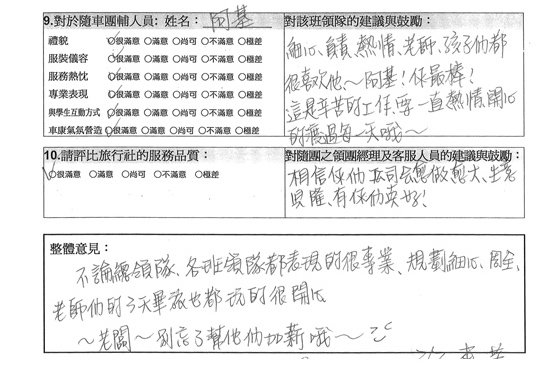 9.對於隨車團輔人員: 姓名: 阿基
禮貌 ○很滿意 ○滿意 ○尚可 ○不滿意 ○極差
服裝儀容 ○很滿意 ○滿意 ○尚可 ○不滿意 ○極差
服務熱忱 ○很滿意 ○滿意 ○尚可 ○不滿意 ○極差
專業表現 ○很滿意 ○滿意 ○尚可 ○不滿意 ○極差
與學生互動方式 ○很滿意 ○滿意 ○尚可 ○不滿意 ○極差
車康氣氛營造 ○很滿意 ○滿意 ○尚可 ○不滿意 ○極差
對該班領隊的建議與鼓勵:
細心、負責、熱情、老師、孩子們都
很喜歡他~阿基!你最棒!
這是辛苦的工作,要一直熱情、開心
的度過每一天哦~
10.請評比旅行社的服務品質:
○很滿意 ○滿意 ○尚可 ○不滿意 ○極差
對隨團之領團經理及客服人員的建議與鼓勵:
相信你們公司會愈做愈大、生意
興隆,有你們真好!
整體意見:
不論總領隊、各班領隊都表現的很專業、規劃細心、周全,
老師們的3天畢旅也都玩的很開心
~老闆~別忘了幫他們加薪哦~